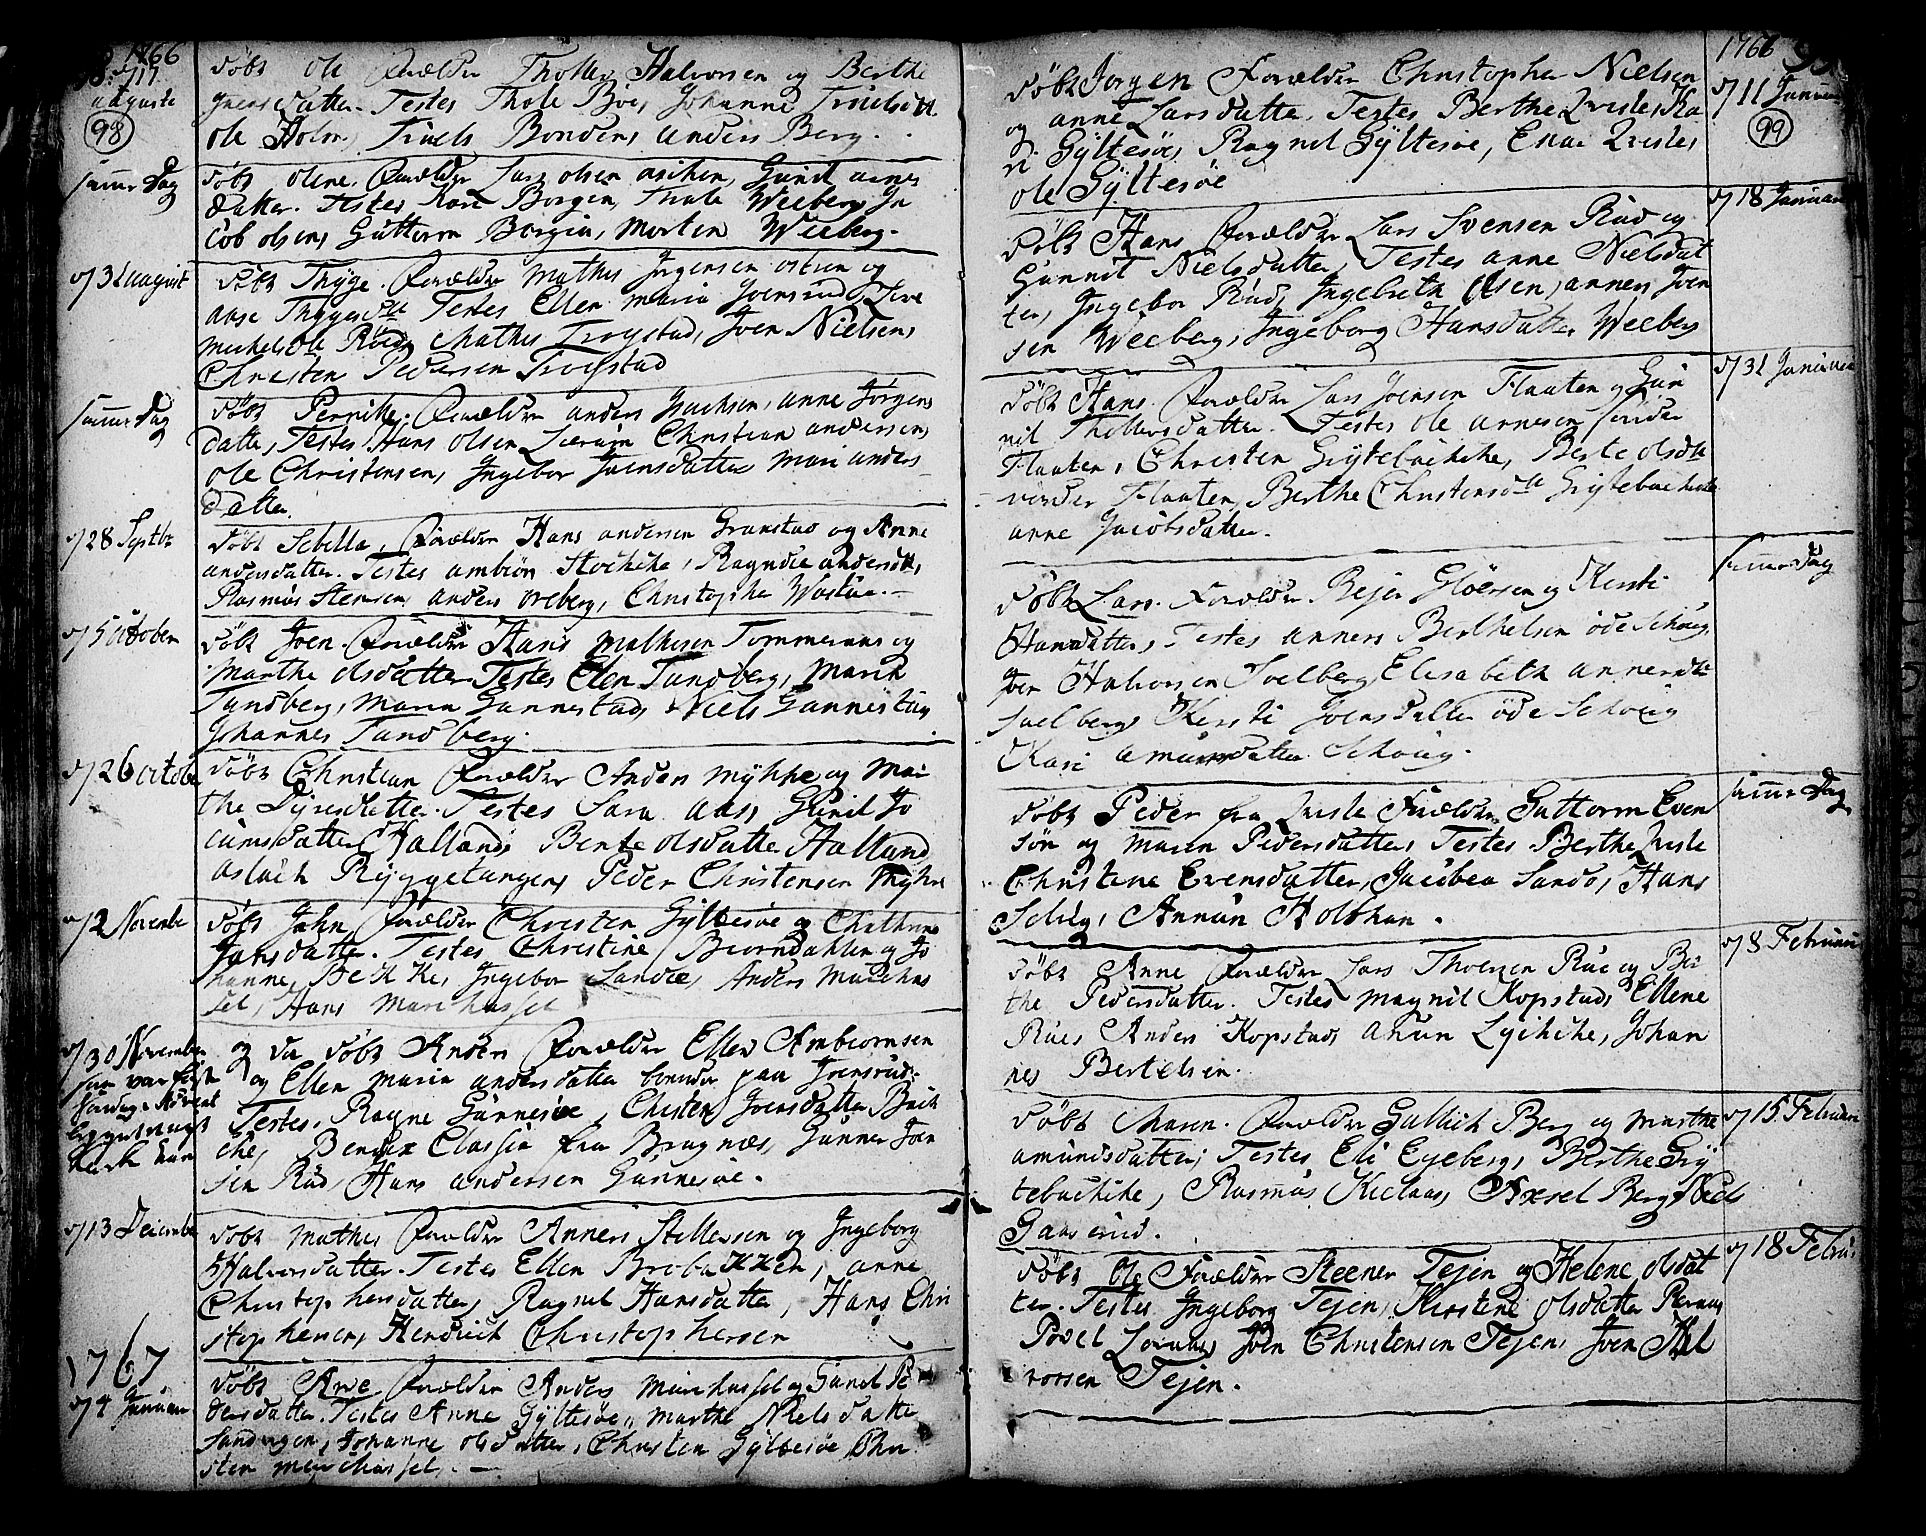 1766
d 17
auguste
98
døbt ole Forældre Tholler Halvorsen og Berthe
Jensdatter. Testes Thole Boe, Johanne Truelsdtt.
ole Holm, Truels Bonden, anders Berg.
samme Dag
døbt olene. Forældre Lars olsen asiken, Gunil arnes
datter. Testes Kari Borgen, Trule Weeberg, Ja
cob olsen, Guttorm Borgen, Morten Weeberg.
d 31 august
døbt Thyge. Forældre Mathis Jørgensen ostsen og
aase Thygesdtt Testes Ellen maria Joensrud, Live
Michelsdtt Rød, Mathis Trogstad, Joen Nielsen,
Christen Pedersen Trogstad
samme Dag
døbt Pernille. Forældre anders Isachsen, anne Jørgens
datter, Testes Hans olsen Lerum Christian andersen,
ole Christensen, Ingebor Joensdatter Mari anders
datter.
d 28 Septbr
døbt Sebilla, Forældre Hans andersen Granstad og Anne
andersdatter. Testes ambiørn Stochche, Ragndie andersdtt,
Rasmus Stensen, anders oreberg, Christopher
d 5 october
døbt Joen. Forældre Hans Mathisen Tommeraas og
Marthe olsdatter Testes Elen Tundberg, Maria
Tundberg, Maria Gunnestad, Niels Gunnestad,
Johannes Tundberg.
d 26 octobe
døbt Christian Forældre Anders Myhre og Mar
the Dyresdatter. Testes Sara aas, Gunil Jo
cumsdatter Halland, Bente olsdatter Halland
aslach Ryggetangen, Peder Christensen Myhre
d 2 Novembe
døbt John, Forældre Christen Gyltesøe og Chathrine
Jansdatter. Testes Christine Biorndahlen og Jo
hanne Bekke, Ingebor Sandøe, Anders Marchus
sel, Hans Marchussel
d 30 November
som var første
søndag i Advent
og da døbt Anders Forældre Elles Ambiornsen
og Ellen Maria andersdatter boende paa Joensrud.
Testes, Ragne Gunnesøe, Chisten Joensdatter Bach
che, Bendix Clasen fra Bragnæs, Gunner Joen
sen Rud, Hans andersen Gunnesøe.
d 13 Decembe
døbt Mathes Forældre Anners Stillessen og Ingeborg
Halvorsdatter. Testes Ellen Brebakken, anne
Christophersdatter, Ragnil Hansdatter, Hans Chri
stophersen, Hendrich Christophersen
1767
d 4 Januar
døbt Arve Forældre Anders Marchussel og Gunel Pe
dersdatter. Testes Anne Gyltesøe, Marthe Nielsdatter
Sandengen, Johanne olsdatter, Christen Gyltesøe Chri
sten Marchussel.
1766
d 11 Januar
99
døbt Jørgen Forældre Christopher Nielsen
og anne Larsdatter, Testes Berthe Qviste, Ka
ri Gyltesøe, Ragnil Gyltesøe, Enar Qviste,
ole Gyltesøe
d 18 Januar
døbt Hans Forældre Lars Svensen Rud og
Gunnil Nielsdatter, Testes anne Nielsdat
ter, Ingebor Rud, Ingebreth olsen, anners Joen
sen Weeberg, Ingeborg Hansdatter Weeberg
d 31 Januar
døbt Hans. Forældre Lars Joensen Flaaten og Gun
nil Thollersdatter. Testes ole arnesen sønder
Flaaten, Christen Grytebachche, Berte olsdtt
nørder Flaaten, Berthe Christensdtt Grytebachche
anne Jacobsdatter.
samme Dag
døbt Lars. Forældre Rejer Gloersen og Kersti
Hansdatter, Testes anners Berthelsen øde Schoug,
Joen Halvorsen Solberg, Elisabeth annersdtt
Solberg, Kersti Joensdatter øde Schoug
Kari amundsdatter Schoug.
samme Dag
døbt Peder fra Qviste Forældre Guttorm Even
søn og Maren Pedersdatter, Testes Berthe Qviste
Christene Evensdatter, Jacobea Sando, Hans
Selvig, Annun Holthan.
d 8 Februari
døbt Anne Forældre Lars Thoersen Rue og Bir
the Pedersdatter. Testes Magnil Kopstad, Ellene
Rues Anders Kopstad, Anun Lychche, Johan
nes Bertelsen.
d 15 Februar
døbt Maren. Forældre Gullich Berg og Marthe
amundsdatter, Testes Eli Eyeberg, Berthe Gry
tebachche, Rasmus Kiclaas, Axsel Berg, Niels
Gaaserud.
d 18 Februa
døbt Ole Forældre Steener Tejen og Helene olsdat
ter. Testes Ingeborg Tejen, Kirstene olsdatter
Povel Joen Christensen Tejen, Joen Hal
vorsen Tejen.